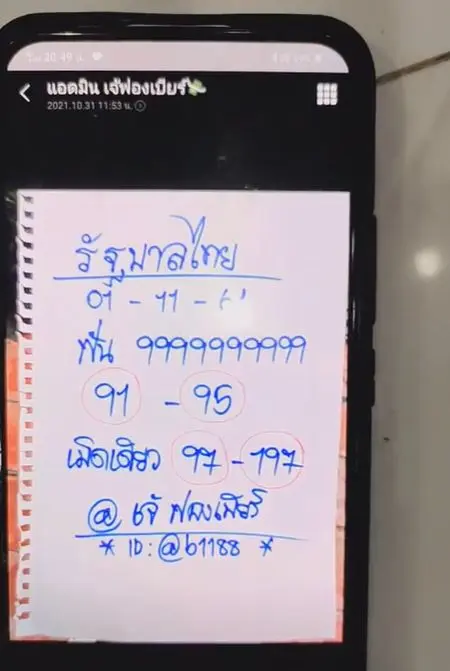 20:49 น.
แอดมิน เจ้ฟองเบียร์
2021.10.31 11:53 น.
รัฐบาลไทย
01 - 11 -
ฟัน 9999999999
91 - 95
เม็ดเดียว 97 - 797
@ เจ้ ฟองเบียร์
* ID : @b1188 *